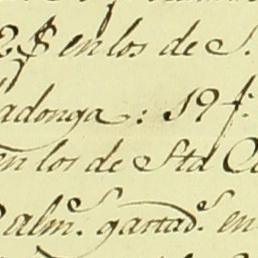 en los de S.
adonga: 19 f.
en los de Std Co
alm.s gastad.s en